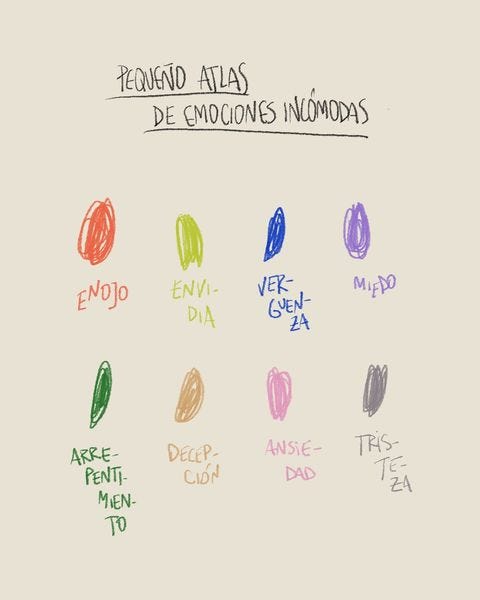 PEQUEÑO ATLAS
DE EMOCIONES INCÓMODAS
ENOJO
ENVI-
DIA
VER-
GUEN-
ZA
MIEDO
ARRE-
PENTI-
MIEN-
TO
DECEP-
CIÓN
ANSIE-
DAD
TRIS-
TE-
ZA